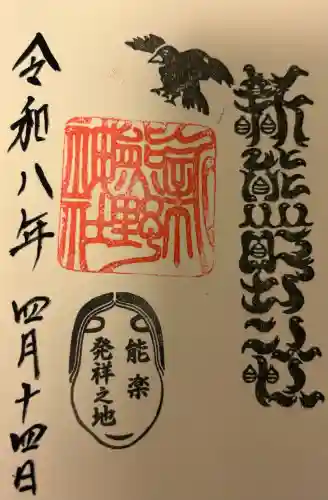 新熊野神社
新熊野神社
能楽
発祥之地
令和八年 四月十四日